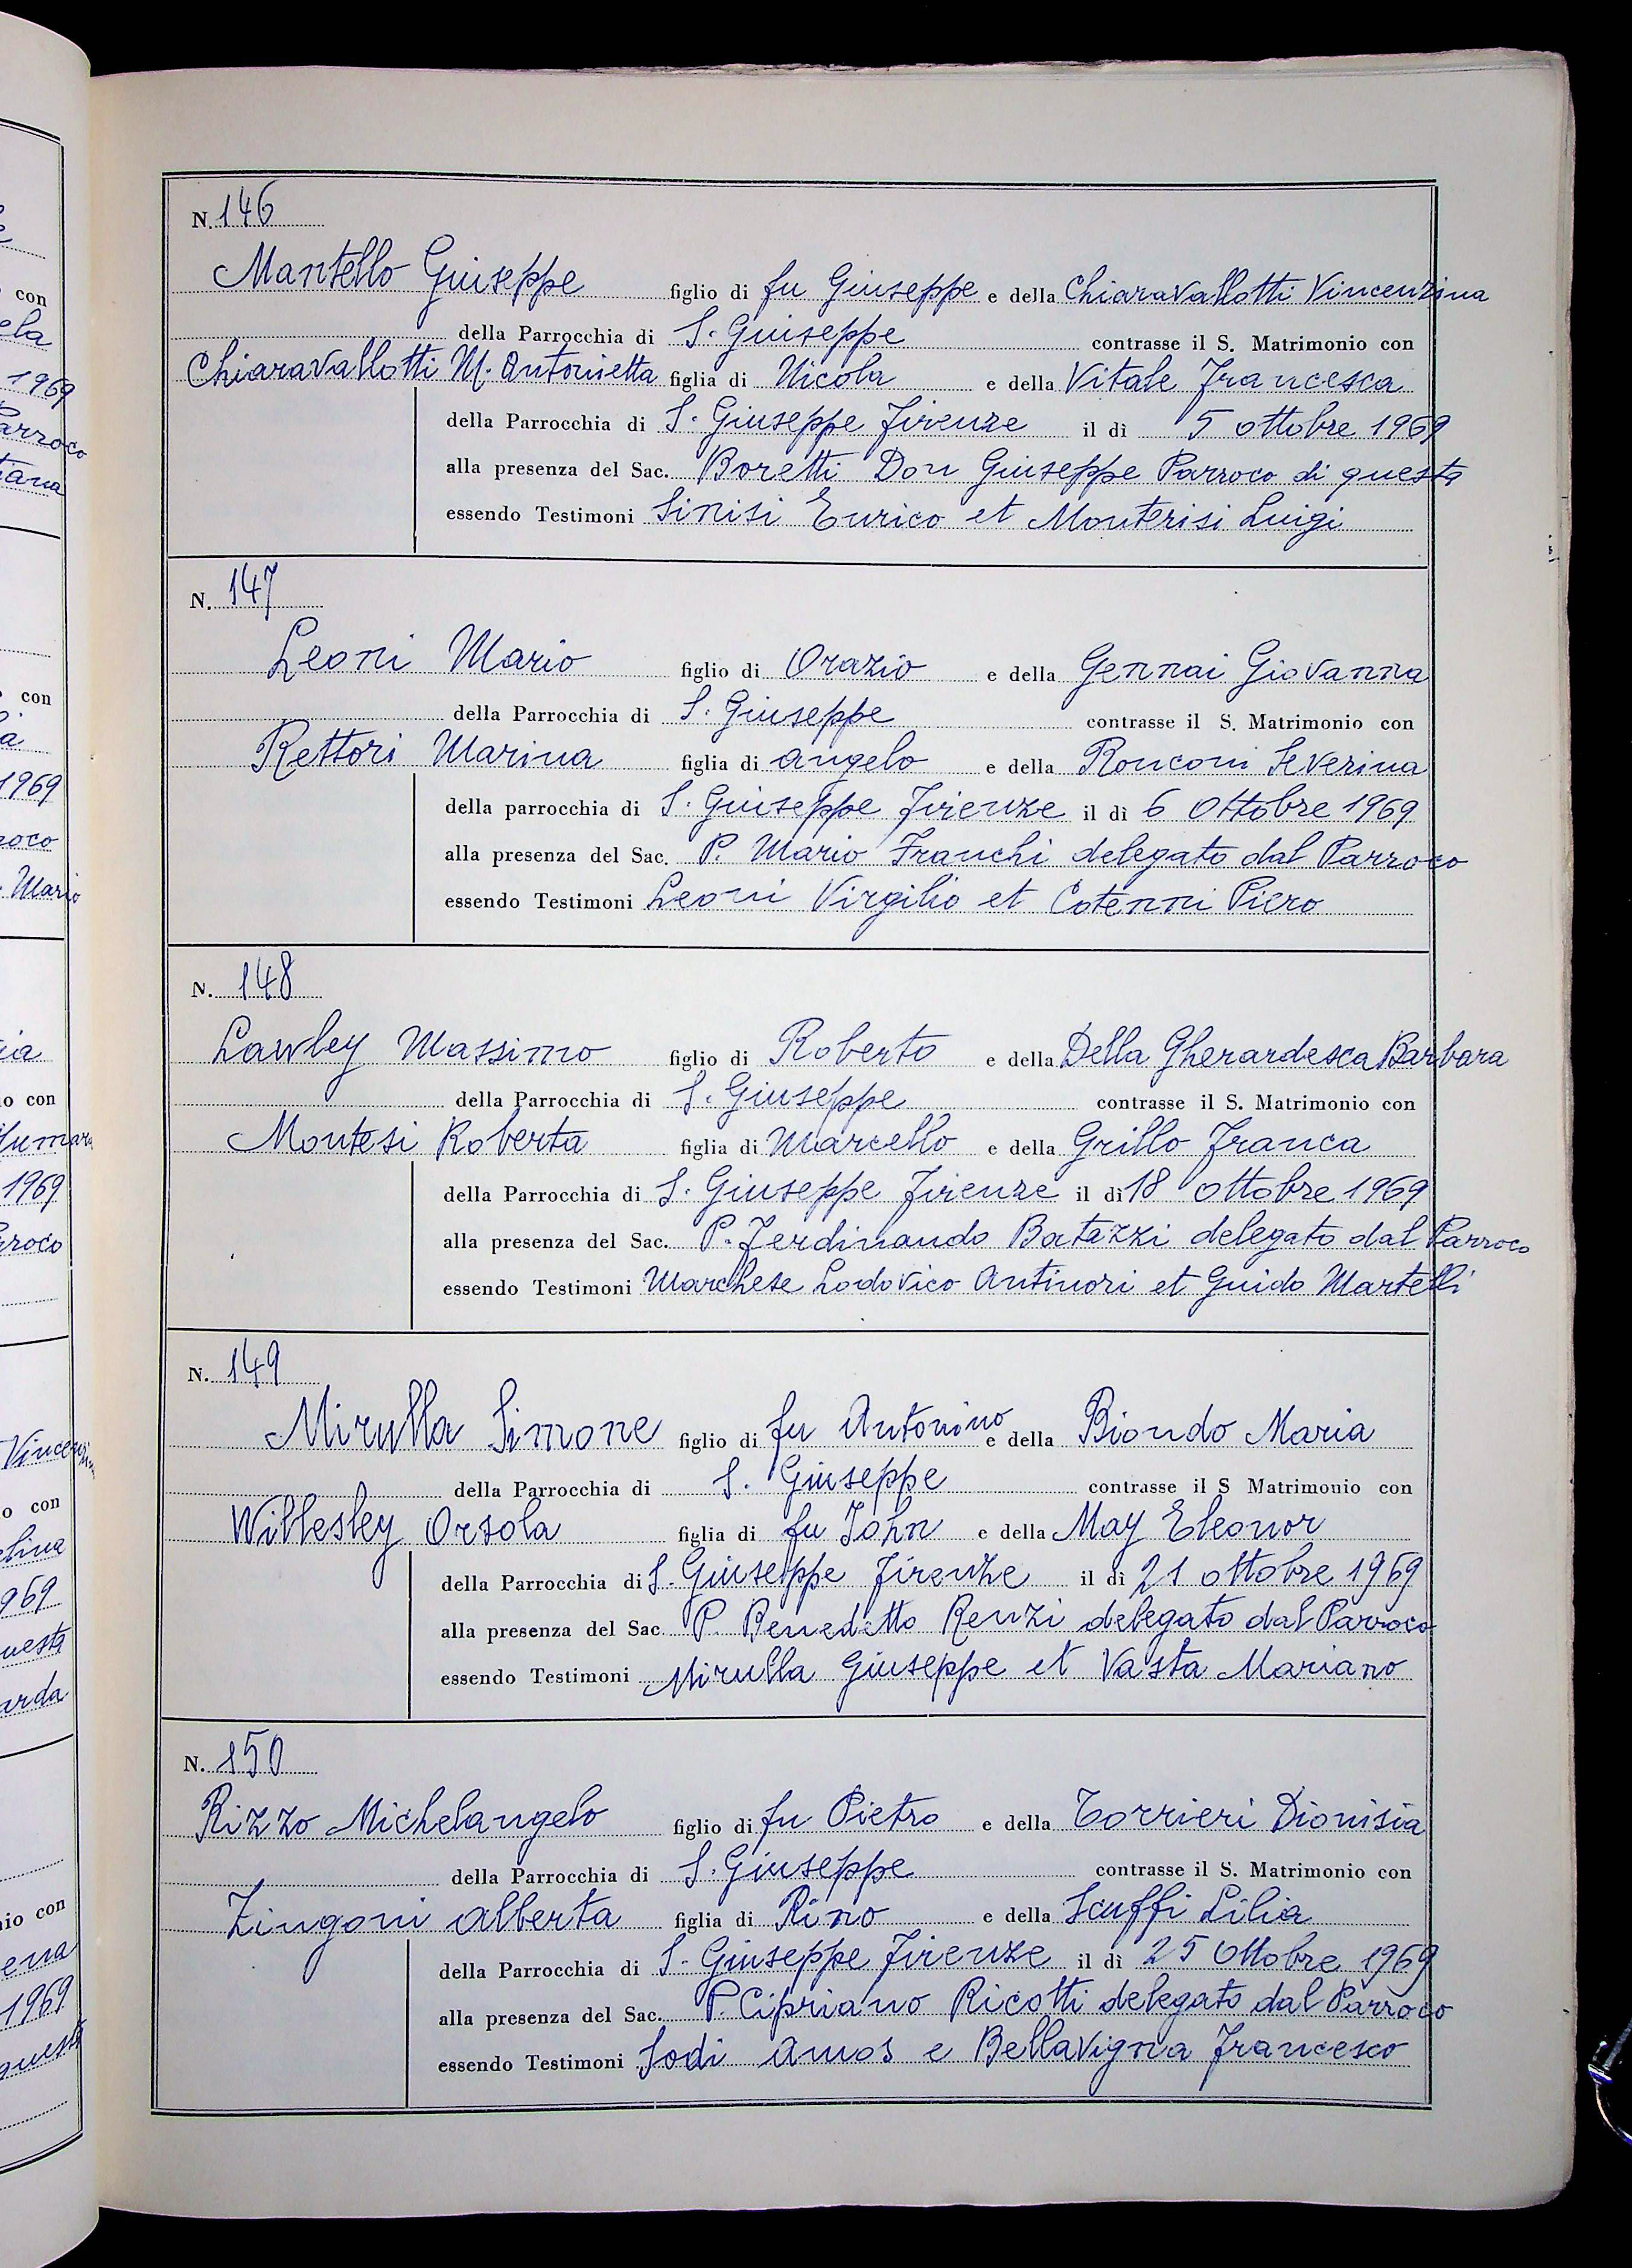 N. 146
Mantello Giuseppe figlio di fu Giuseppe e della Chiaravallotti Vincenzina
della Parrocchia di S. Giuseppe contrasse il S. Matrimonio con
Chiaravallotti M. Antonietta figlia di Nicola e della Vitale Francesca
della Parrocchia di S. Giuseppe Firenze il dì 5 ottobre 1969
alla presenza del Sac. Boretti Don Giuseppe Parroco di questa
essendo Testimoni Sinisi Enrico et Monterisi Luigi
N. 147
Leoni Mario figlio di Orazio e della Gennai Giovanna
della Parrocchia di S. Giuseppe contrasse il S. Matrimonio con
Rettori Marina figlia di Angelo e della Ronconi Severina
della parrocchia di S. Giuseppe Firenze il dì 6 Ottobre 1969
alla presenza del Sac. P. Mario Franchi delegato dal Parroco
essendo Testimoni Leoni Virgilio et Cotenni Piero
N. 148
Lawley Massimo figlio di Roberto e della Della Gherardesca Barbara
della Parrocchia di S. Giuseppe contrasse il S. Matrimonio con
Montesi Roberta figlia di Marcello e della Grillo Franca
della Parrocchia di S. Giuseppe Firenze il dì 18 ottobre 1969
alla presenza del Sac. P. Ferdinando Batazzi delegato dal Parroco
essendo Testimoni Marchese Lodovico Antinori et Guido Martelli
N. 149
Mirulla Simone figlio di fu Antonino e della Biondo Maria
della Parrocchia di S. Giuseppe contrasse il S Matrimonio con
Willesley Orsola figlia di fu John e della May Eleonor
della Parrocchia di S. Giuseppe Firenze il dì 21 ottobre 1969
alla presenza del Sac. P. Benedetto Renzi delegato dal Parroco
essendo Testimoni Mirulla Giuseppe et Vasta Mariano
N. 150
Rizzo Michelangelo figlio di fu Pietro e della Torrieri Dionisia
della Parrocchia di S. Giuseppe contrasse il S. Matrimonio con
Zingoni Alberta figlia di Rino e della Scuffi Lilia
della Parrocchia di S. Giuseppe Firenze il dì 25 Ottobre 1969
alla presenza del Sac. P. Cipriano Ricotti delegato dal Parroco
essendo Testimoni Sodi Amos e Bellavigna Francesco